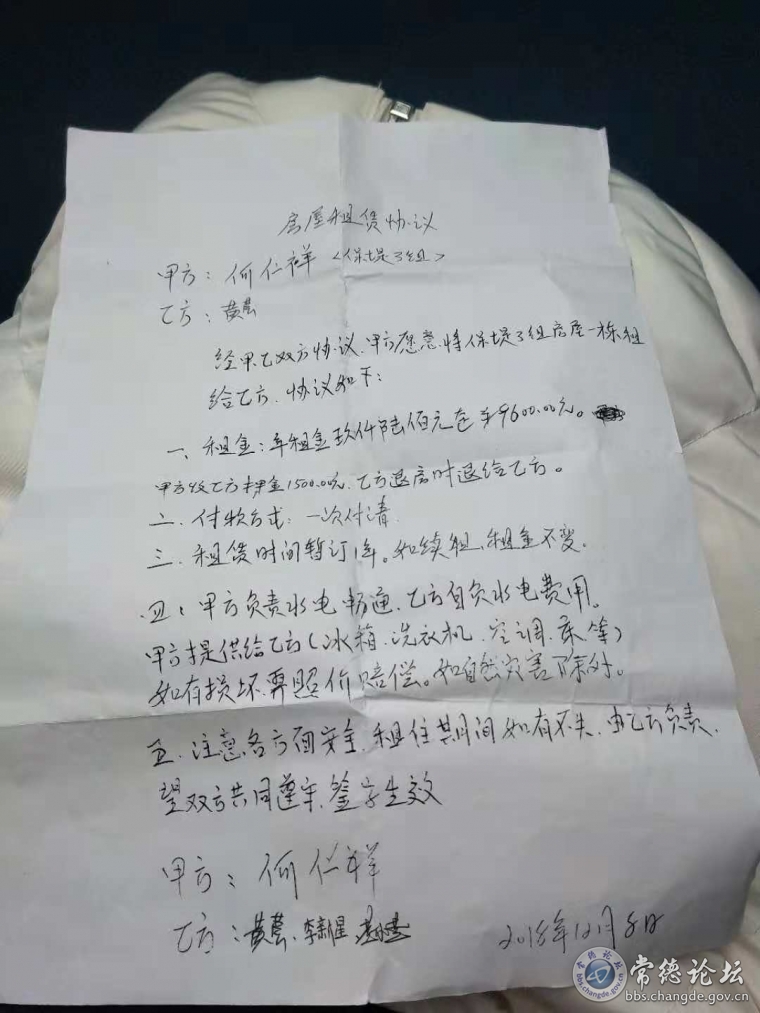 房屋租赁协议
甲方：何仁祥〈保堤3组〉
乙方：黄芸
经甲乙双方协议，甲方愿意将保堤3组房屋一栋租
给乙方，协议如下：
一、租金：年租金玖仟陆佰元 ¥9600.00元。
甲方收乙方押金1500.00元，乙方退房时退给乙方。
二、付款方式：一次付清
三、租赁时间暂订1年。如续租，租金不变。
四、甲方负责水电畅通、乙方自负水电费用。
甲方提供给乙方（冰箱、洗衣机、空调、床等）
如有损坏要照价赔偿。如自然灾害除外。
五、注意各方面安全，租住其间如有不失，由乙方负责，
望双方共同遵守，签字生效
甲方：何仁祥
乙方：李新星
2018年12月8日
常德论坛
bbs.changde.gov.cn